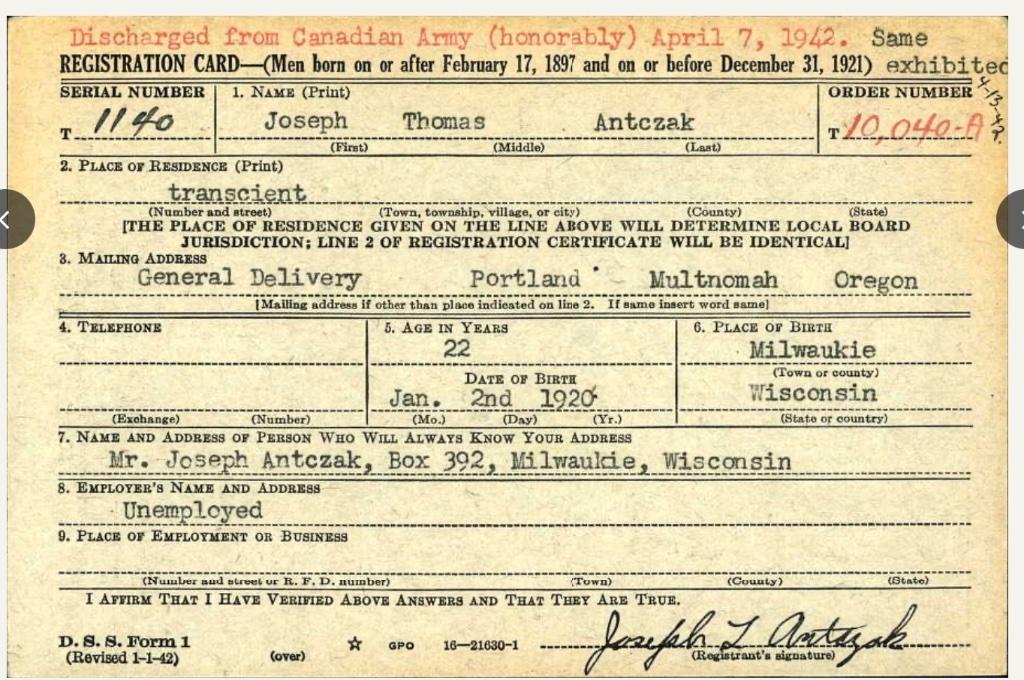 Discharged from Canadian Army (honorably) April 7, 1942. Same
REGISTRATION CARD—(Men born on or after February 17, 1897 and on or before December 31, 1921) exhibited
4-13-42.
SERIAL NUMBER 1. NAME (Print) ORDER NUMBER
T 1140 Joseph Thomas Antczak T 10,040-A
(First) (Middle) (Last)
2. PLACE OF RESIDENCE (Print)
transcient
(Number and street) (Town, township, village, or city) (County) (State)
[THE PLACE OF RESIDENCE GIVEN ON THE LINE ABOVE WILL DETERMINE LOCAL BOARD
JURISDICTION; LINE 2 OF REGISTRATION CERTIFICATE WILL BE IDENTICAL]
3. MAILING ADDRESS
General Delivery Portland Multnomah Oregon
[Mailing address if other than place indicated on line 2. If same insert word same]
4. TELEPHONE 5. AGE IN YEARS 6. PLACE OF BIRTH
22 Milwaukie
(Town or county)
DATE OF BIRTH
Jan. 2nd 1920 Wisconsin
(Exchange) (Number) (Mo.) (Day) (Yr.) (State or country)
7. NAME AND ADDRESS OF PERSON WHO WILL ALWAYS KNOW YOUR ADDRESS
Mr. Joseph Antczak, Box 392, Milwaukie, Wisconsin
8. EMPLOYER'S NAME AND ADDRESS
Unemployed
9. PLACE OF EMPLOYMENT OR BUSINESS
(Number and street or R. F. D. number) (Town) (County) (State)
I AFFIRM THAT I HAVE VERIFIED ABOVE ANSWERS AND THAT THEY ARE TRUE.
D. S. S. Form 1
(Revised 1-1-42) (over) GPO 16—21630-1 Joseph T Antczak
(Registrant's signature)